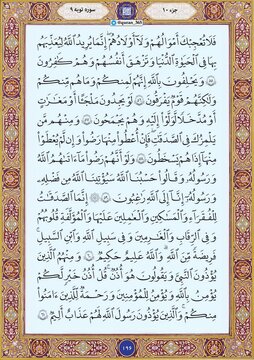 جزء ۱۰
@quran_365
سوره توبه ۹
فَلَا تُعۡجِبۡكَ أَمۡوَٰلُهُمۡ وَلَآ أَوۡلَٰدُهُمۡۚ إِنَّمَا يُرِيدُ ٱللَّهُ لِيُعَذِّبَهُم
بِهَا فِي ٱلۡحَيَوٰةِ ٱلدُّنۡيَا وَتَزۡهَقَ أَنفُسُهُمۡ وَهُمۡ كَٰفِرُونَ
۝٥٥ وَيَحۡلِفُونَ بِٱللَّهِ إِنَّهُمۡ لَمِنكُمۡ وَمَا هُم مِّنكُمۡ
وَلَٰكِنَّهُمۡ قَوۡمٞ يَفۡرَقُونَ ۝٥٦ لَوۡ يَجِدُونَ مَلۡجَـًٔا أَوۡ مَغَٰرَٰتٍ
أَوۡ مُدَّخَلٗا لَّوَلَّوۡاْ إِلَيۡهِ وَهُمۡ يَجۡمَحُونَ ۝٥٧ وَمِنۡهُم مَّن
يَلۡمِزُكَ فِي ٱلصَّدَقَٰتِ فَإِنۡ أُعۡطُواْ مِنۡهَا رَضُواْ وَإِن لَّمۡ يُعۡطَوۡاْ
مِنۡهَآ إِذَا هُمۡ يَسۡخَطُونَ ۝٥٨ وَلَوۡ أَنَّهُمۡ رَضُواْ مَآ ءَاتَىٰهُمُ ٱللَّهُ
وَرَسُولُهُۥ وَقَالُواْ حَسۡبُنَا ٱللَّهُ سَيُؤۡتِينَا ٱللَّهُ مِن فَضۡلِهِۦ
وَرَسُولُهُۥٓ إِنَّآ إِلَى ٱللَّهِ رَٰغِبُونَ ۝٥٩ ۞ إِنَّمَا ٱلصَّدَقَٰتُ
لِلۡفُقَرَآءِ وَٱلۡمَسَٰكِينِ وَٱلۡعَٰمِلِينَ عَلَيۡهَا وَٱلۡمُؤَلَّفَةِ قُلُوبُهُمۡ
وَفِي ٱلرِّقَابِ وَٱلۡغَٰرِمِينَ وَفِي سَبِيلِ ٱللَّهِ وَٱبۡنِ ٱلسَّبِيلِۖ
فَرِيضَةٗ مِّنَ ٱللَّهِۗ وَٱللَّهُ عَلِيمٌ حَكِيمٞ ۝٦٠ وَمِنۡهُمُ ٱلَّذِينَ
يُؤۡذُونَ ٱلنَّبِيَّ وَيَقُولُونَ هُوَ أُذُنٞۚ قُلۡ أُذُنُ خَيۡرٖ لَّكُمۡ
يُؤۡمِنُ بِٱللَّهِ وَيُؤۡمِنُ لِلۡمُؤۡمِنِينَ وَرَحۡمَةٞ لِّلَّذِينَ ءَامَنُواْ
مِنكُمۡۚ وَٱلَّذِينَ يُؤۡذُونَ رَسُولَ ٱللَّهِ لَهُمۡ عَذَابٌ أَلِيمٞ ۝٦١
۱۹۶